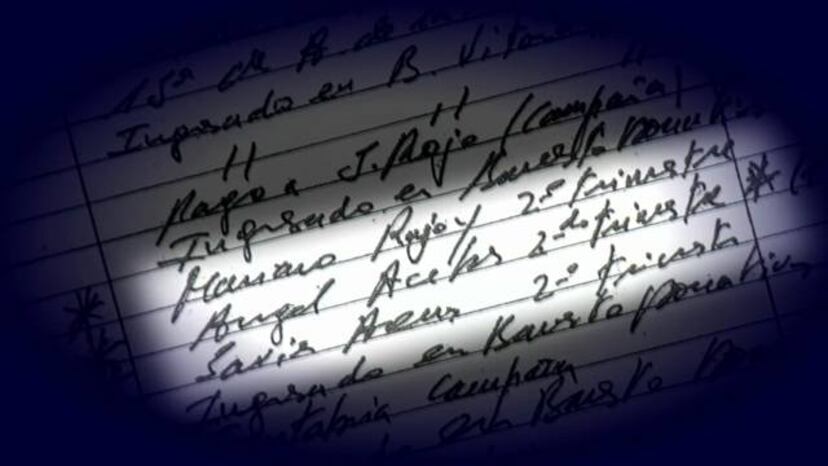 15ª de A. de
Ingresado en B. Vitoria
" "
Pago a J. Rojo (Campaña)
Ingresado en Banesto Donativo
Mariano Rajoy 2º trimestre
Angel Acebes 2do trimestre * (
Javier Arenas 2º trimestre
Ingresado en Banesto Donativo
Cantabria Campaña
en Banesto